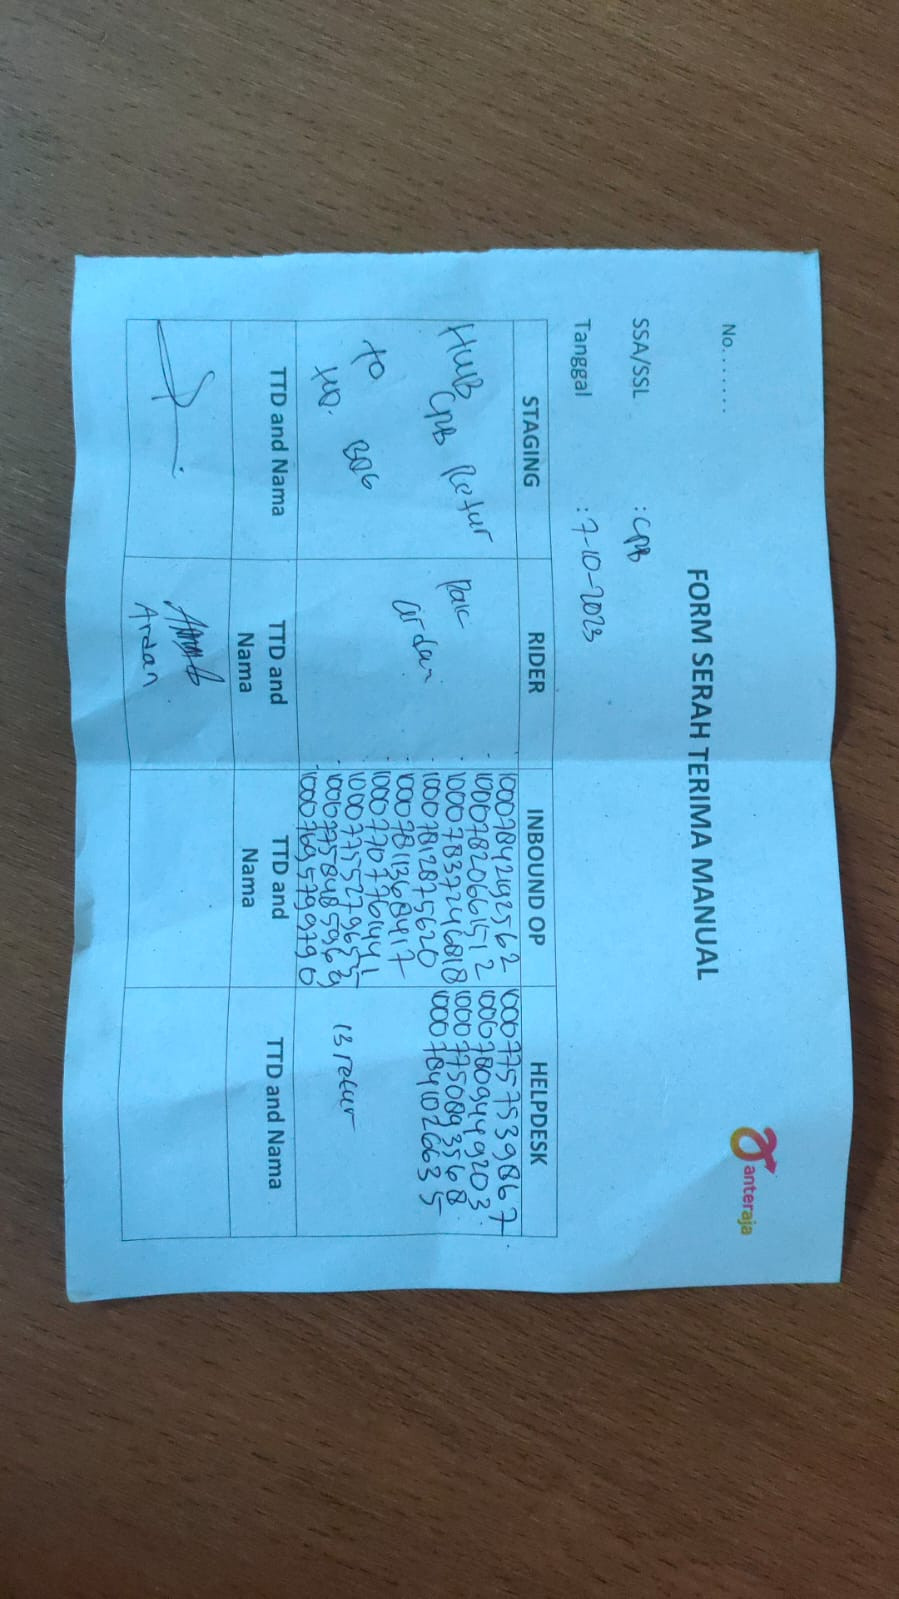 No.......
anteraja
FORM SERAH TERIMA MANUAL
SSA/SSL : CPB
Tanggal : 7-10-2023
STAGING RIDER INBOUND OP HELPDESK
HUB
CPB Retur
to BQ6
HQ.
Pak
ardan
1000784292562
10007820661512
10007837246818
10007812875620
10007811368417
10007707761441
10007699799790
10007757539867
10007809449203
10007750893568
10007841026635
13 retur
TTD and Nama TTD and Nama TTD and Nama TTD and Nama
Ardan